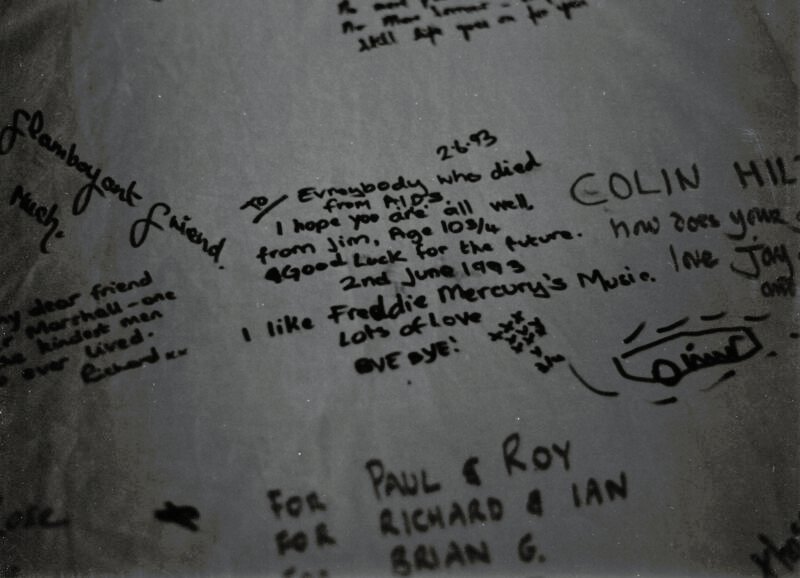 Still life goes on for you
flamboyant
friend.
Much.
2.6.93
TO Evreybody who died
from A.I.D.S.
I hope you are all well,
from Jim, Age 10 3/4
Good Luck for the future.
2nd June 1993
I like Freddie Mercury's Music.
Lots of Love
BYE BYE!
COLIN
how does your
love Jay
my dear friend
Marshall - one
the kindest men
ever lived.
Richard xx
FOR PAUL & ROY
FOR RICHARD & IAN
BRIAN G.